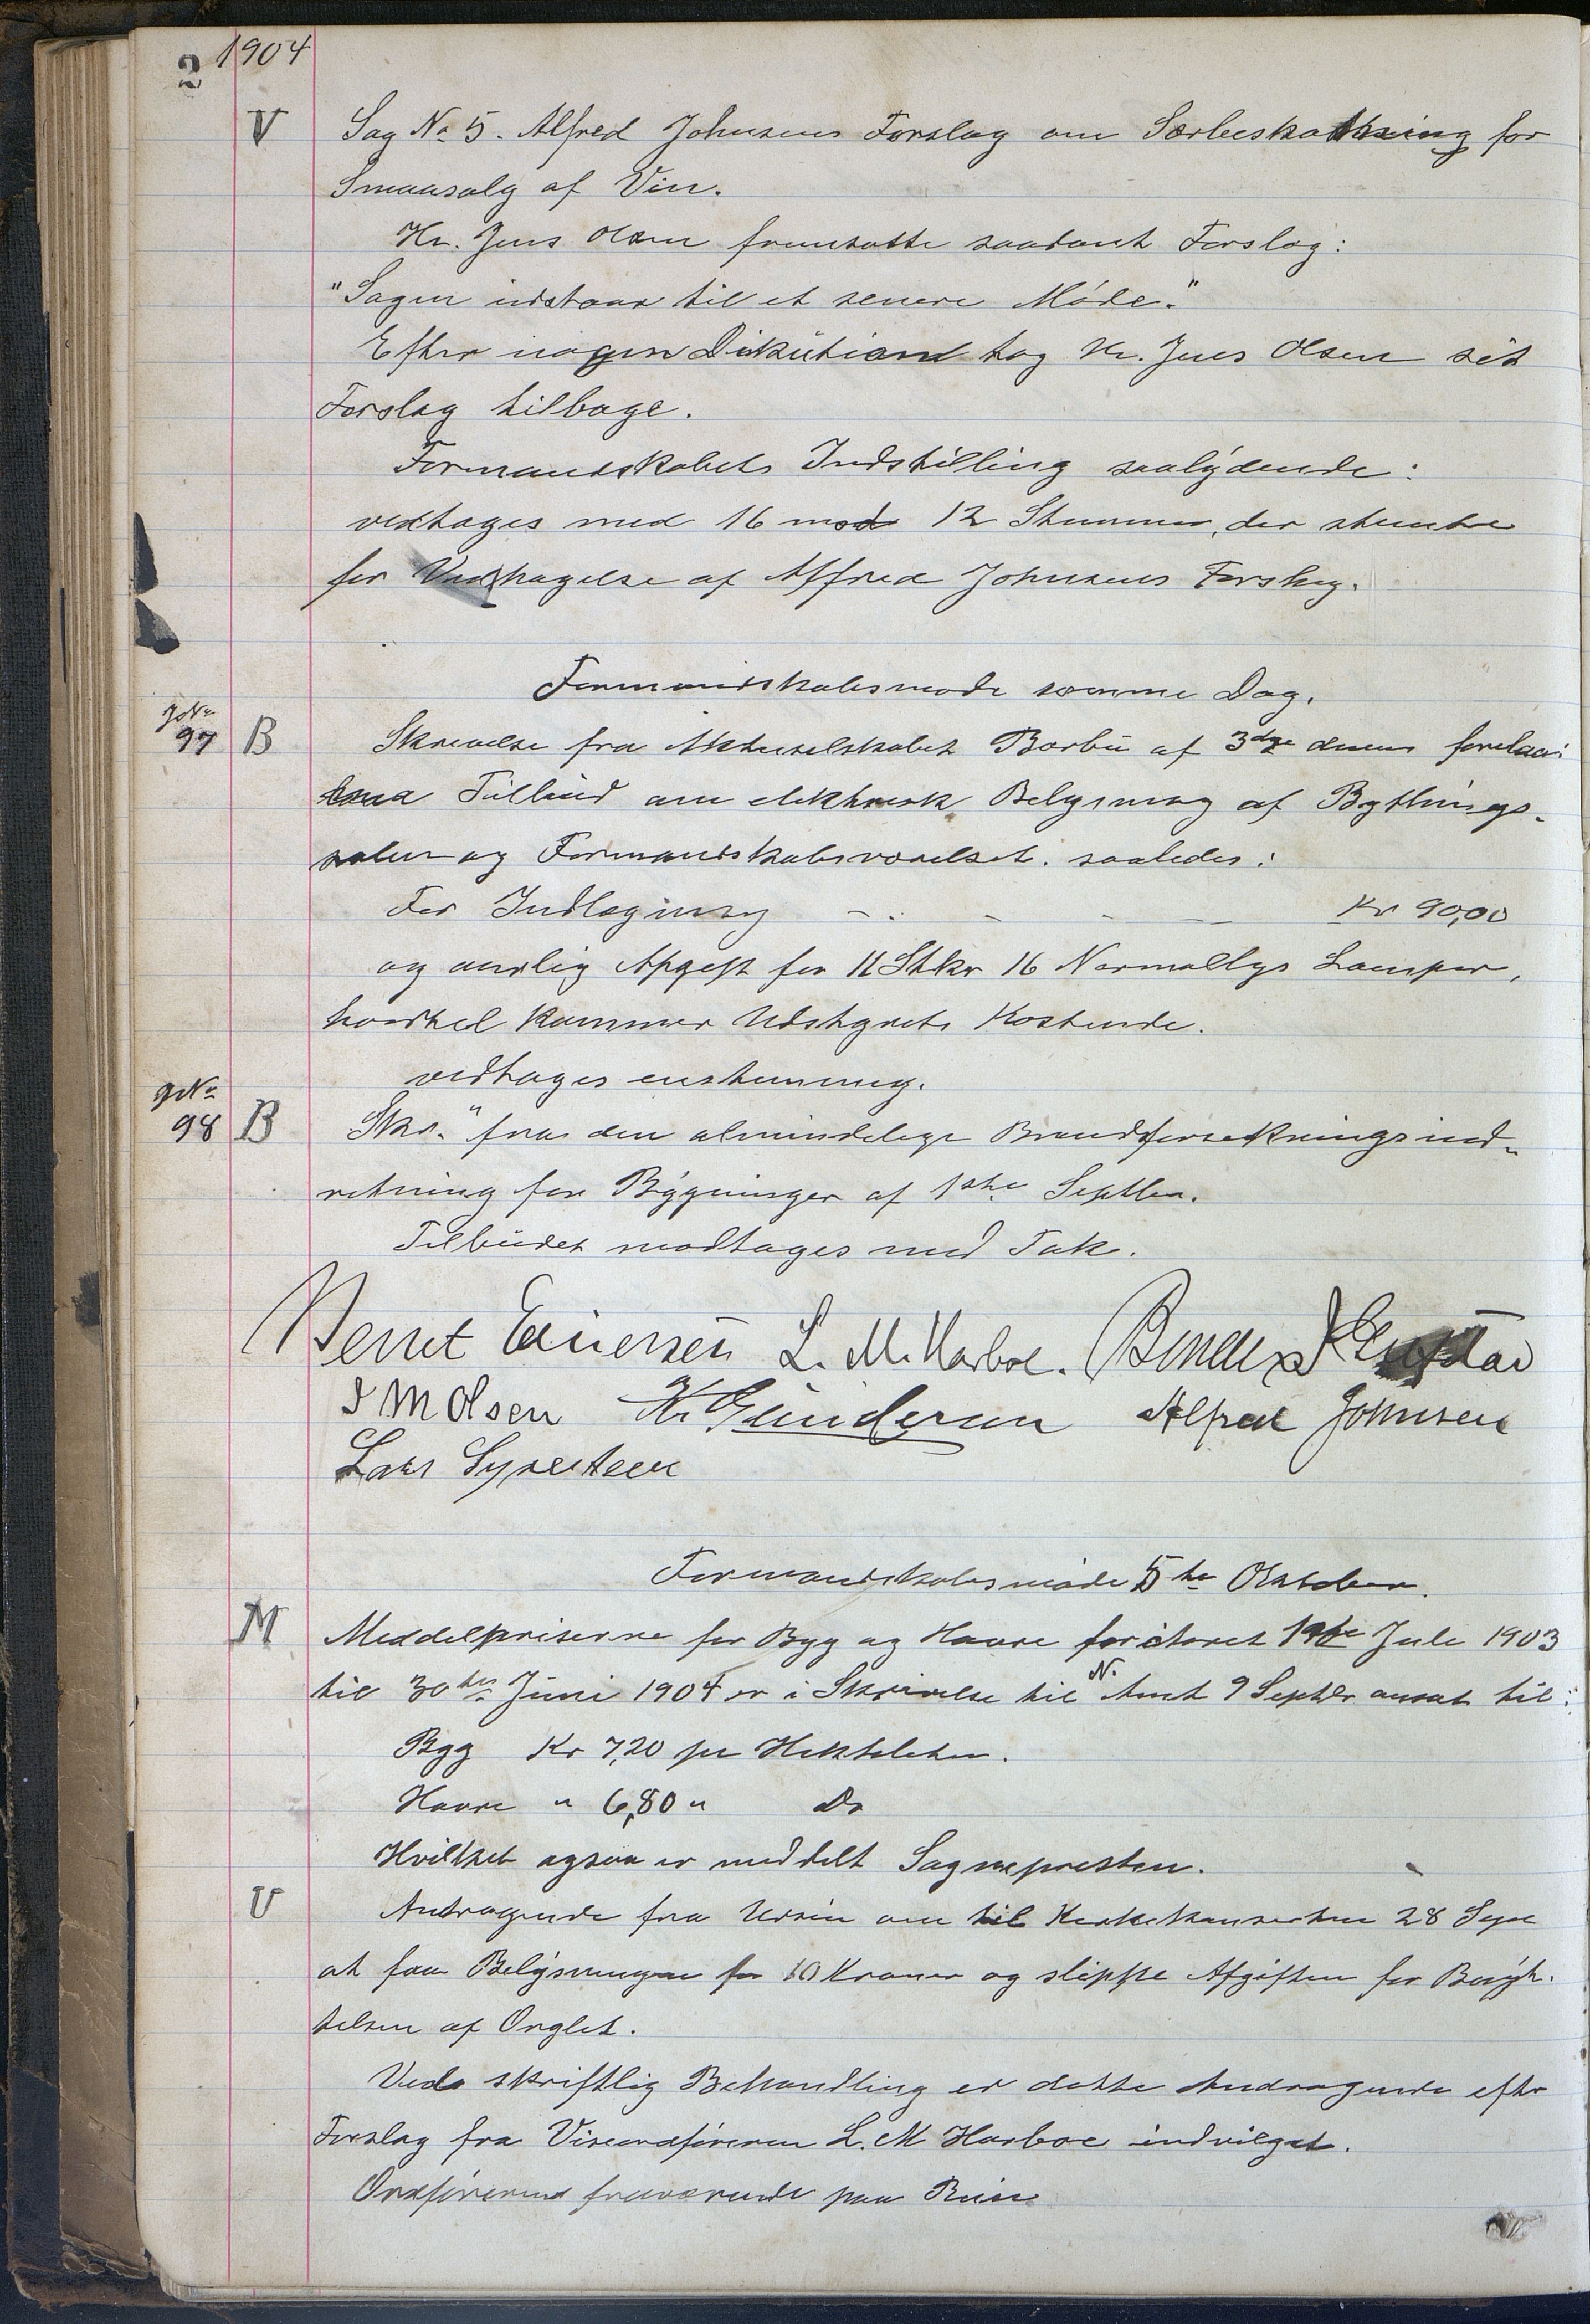 2 1904
V Sag No 5. Alfred Johnsens Forslag om Særbeskatning for
Smaasalg af Vin.
Hr. Jens Olsen fremsatte saadant Forslag:
"Sagen udstaar til et senere Møde."
Efter nogen Diskution tog Hr. Jens Olsen sit
Forslag tilbage.
Formandskabets Indstilling saalydende:
vedtages med 16 mod 12 Stemmer, der stemte
for Vedtagelse af Alfred Johnsens Forslag.
Formandskabsmøde samme Dag.
gNo 97 B Skrivelse fra Aktieselskabet Barbu af 3die dennes forelaa:
Tilbud om elektrisk Belysning af Bythings-
salen og Formandskabsværelset. saaledes:
For Indlægning - - - - Kr 90,00
og aarlig Afgift for 11 Stkr 16 Normallys Lamper,
hvortil kommer Udstyrets Kostende.
vedtages enstemmig.
gNo 98 B Skr." fra den almindelige Brandforsekringsind-
retning for Bygninger af 1ste Septbr.
Tilbudet modtages med Tak.
Berret Einersen L. M. Harboe.
J M Olsen Kr Gundersen Alfred Johnsen
Lars Syvertsen
Formandskabsmøde 5te Oktober.
M Middelpriserne for Byg og Havre for Aaret 1ste Juli 1903
til 30te Juni 1904 er i Skrivelse til N. Amt 9 Septbr ansat til:
Byg Kr 7,20 pr Hektoliter.
Havre " 6,80 " Do
Hvilket ogsaa er meddelt Sognepresten.
U Andragende fra Ursin om til Kirkekonserten 28 Sept
at faa Belysningen for 10 Kroner og slippe Afgiften for Benyt-
telsen af Orglet.
Ved skriftlig Behandling er dette Andragende efter
Forslag fra Viseordføreren L. M Harboe indvilget.
Ordføreren fraværende paa Reise